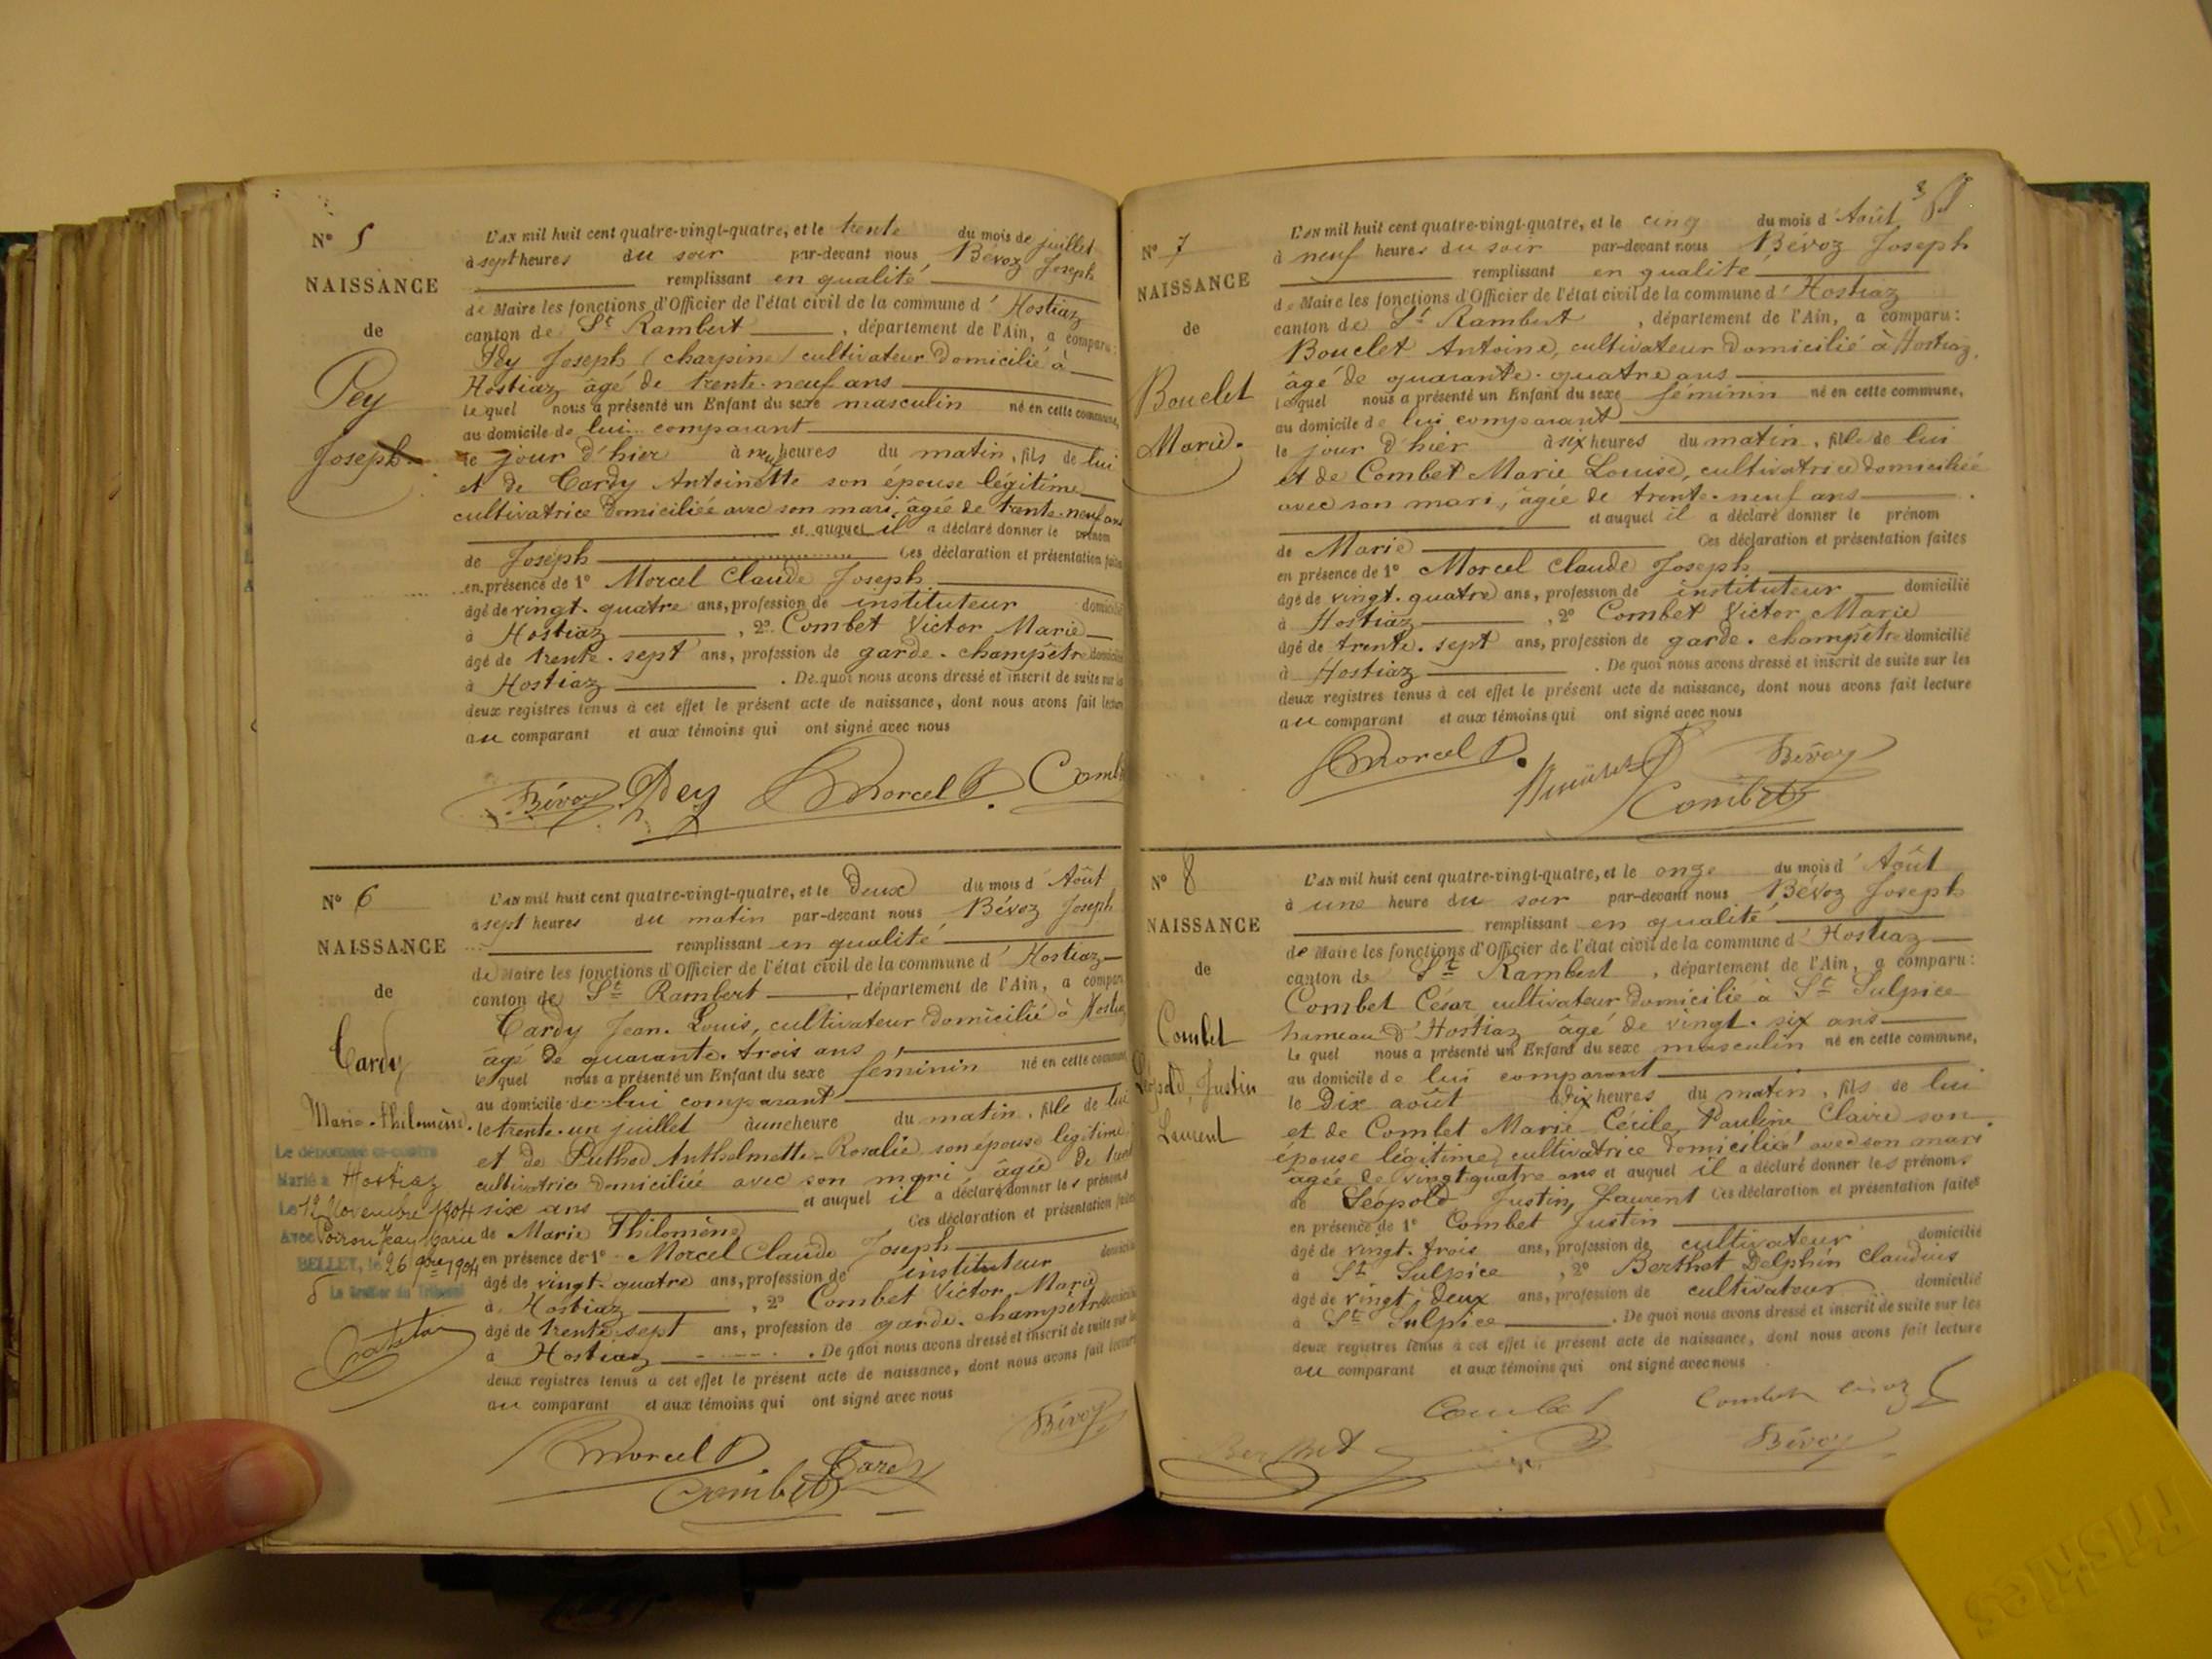 N° 5
NAISSANCE
de
Pey
Joseph
L'AN mil huit cent quatre-vingt-quatre, et le trente du mois de juillet
à sept heures du soir par-devant nous Bévoz Joseph
remplissant en qualité
de Maire les fonctions d'Officier de l'état civil de la commune d'Hostiaz
canton de St Rambert, département de l'Ain, a comparu:
Pey Joseph (charpine) cultivateur domicilié à
Hostiaz âgé de trente-neuf ans
lequel nous a présenté un Enfant du sexe masculin né en cette commune,
au domicile de lui comparant
le jour d'hier à neuf heures du matin, fils de lui
et de Cardy Antoinette son épouse légitime
cultivatrice domiciliée avec son mari, âgée de trente-neuf ans
et auquel il a déclaré donner le prénom
de Joseph Ces déclaration et présentation faites
en présence de 1° Morcel Claude Joseph
âgé de vingt-quatre ans, profession de instituteur domicilié
à Hostiaz, 2° Combet Victor Marie
âgé de trente-sept ans, profession de garde-champêtre domicilié
à Hostiaz. De quoi nous avons dressé et inscrit de suite sur les
deux registres tenus à cet effet le présent acte de naissance, dont nous avons fait lecture
au comparant et aux témoins qui ont signé avec nous
Bévoz Pey Morcel Comb
N° 6
NAISSANCE
de
Cardy
Marie-Philomène.
Le dénommé ci-contre
Marié à Hostiaz
Le 12 Novembre 1904
Avec Poiron Jean Marie
BELLEY, le 26 9bre 1904
Le Greffier du Tribunal
L'AN mil huit cent quatre-vingt-quatre, et le deux du mois d'Août
à sept heures du matin par-devant nous Bévoz Joseph
remplissant en qualité
de Maire les fonctions d'Officier de l'état civil de la commune d'Hostiaz
canton de St Rambert, département de l'Ain, a comparu
Cardy Jean-Louis, cultivateur domicilié à Hostiaz
âgé de quarante-trois ans
lequel nous a présenté un Enfant du sexe féminin né en cette commune
au domicile de lui comparant
le trente-un juillet à une heure du matin, fille de lui
et de Puthod Anthelmette-Rosalie son épouse légitime
cultivatrice domiciliée avec son mari, âgée de trente
six ans et auquel il a déclaré donner les prénoms
de Marie Philomène Ces déclaration et présentation faites
en présence de 1° Morcel Claude Joseph
âgé de vingt-quatre ans, profession de instituteur domicilié
à Hostiaz, 2° Combet Victor Marie
âgé de trente-sept ans, profession de garde-champêtre domicilié
à Hostiaz. De quoi nous avons dressé et inscrit de suite sur les
deux registres tenus à cet effet le présent acte de naissance, dont nous avons fait lecture
au comparant et aux témoins qui ont signé avec nous
Bévoz
Morcel Cardy
Combet
N° 7
NAISSANCE
de
Bouclet
Marie.
L'AN mil huit cent quatre-vingt-quatre, et le cinq du mois d'Août
à neuf heures du soir par-devant nous Bévoz Joseph
remplissant en qualité
de Maire les fonctions d'Officier de l'état civil de la commune d'Hostiaz
canton de St Rambert, département de l'Ain, a comparu:
Bouclet Antoine, cultivateur domicilié à Hostiaz,
âgé de quarante-quatre ans
lequel nous a présenté un Enfant du sexe féminin né en cette commune,
au domicile de lui comparant
le jour d'hier à six heures du matin, fille de lui
et de Combet Marie Louise, cultivatrice domiciliée
avec son mari, âgée de trente-neuf ans
et auquel il a déclaré donner le prénom
de Marie Ces déclaration et présentation faites
en présence de 1° Morcel Claude Joseph
âgé de vingt-quatre ans, profession de instituteur domicilié
à Hostiaz, 2° Combet Victor Marie
âgé de trente-sept ans, profession de garde-champêtre domicilié
à Hostiaz. De quoi nous avons dressé et inscrit de suite sur les
deux registres tenus à cet effet le présent acte de naissance, dont nous avons fait lecture
au comparant et aux témoins qui ont signé avec nous
Morcel Bévoz
Combet
N° 8
NAISSANCE
de
Combet
Léopold, Justin
Laurent
L'AN mil huit cent quatre-vingt-quatre, et le onze du mois d'Août
à une heure du soir par-devant nous Bévoz Joseph
remplissant en qualité
de Maire les fonctions d'Officier de l'état civil de la commune d'Hostiaz
canton de St Rambert, département de l'Ain, a comparu:
Combet César cultivateur domicilié à St Sulpice
hameau d'Hostiaz âgé de vingt-six ans
lequel nous a présenté un Enfant du sexe masculin né en cette commune,
au domicile de lui comparant
le dix août à dix heures du matin, fils de lui
et de Combet Marie Cécile, Pauline Claire son
épouse légitime, cultivatrice domiciliée avec son mari
âgée de vingt quatre ans et auquel il a déclaré donner les prénoms
de Léopold Justin, Laurent Ces déclaration et présentation faites
en présence de 1° Combet Justin
âgé de vingt-trois ans, profession de cultivateur domicilié
à St Sulpice, 2° Berthet Delphin Claudius
âgé de vingt-deux ans, profession de cultivateur domicilié
à St Sulpice. De quoi nous avons dressé et inscrit de suite sur les
deux registres tenus à cet effet le présent acte de naissance, dont nous avons fait lecture
au comparant et aux témoins qui ont signé avec nous
Combet Combet César
Berthet Bévoz
Friskies